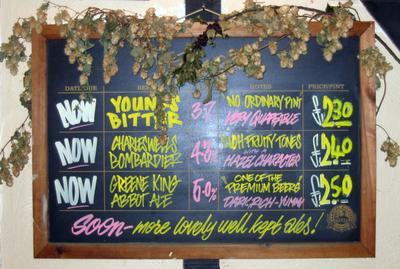 DATE DUE NOTES PRICE/PINT
NOW YOUNGS 3.7% NO ORDINARY PINT £2.30
BITTER VERY QUAFFABLE
NOW CHARLES WELLS RICH FRUITY TONES £2.40
BOMBARDIER WITH A HAZEL CHARACTER
NOW GREENE KING 5.0% "ONE OF THE £2.50
ABBOT ALE PREMIUM BEERS"
DARK, RICH - YUMMY
SOON - more lovely well kept ales!